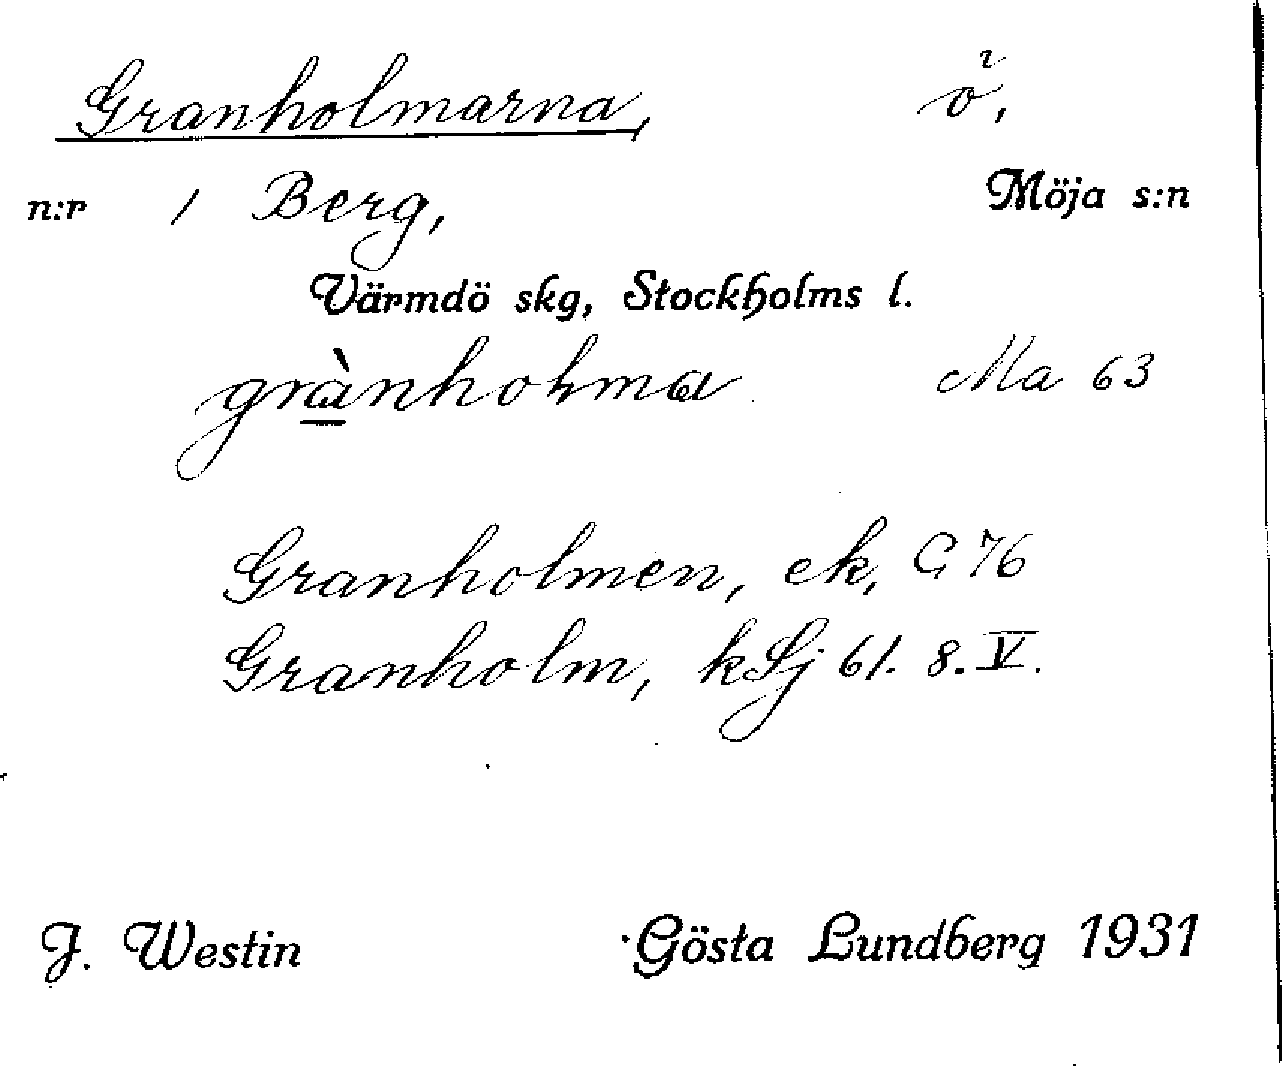 Granholmarna, ö,
n:r 1 Berg, Möja s:n
Värmdö skg, Stockholms l.
grànholma Ma 63
Granholmen, ek, G 76
Granholm, kSj 61. 8. V.
J. Westin Gösta Lundberg 1931